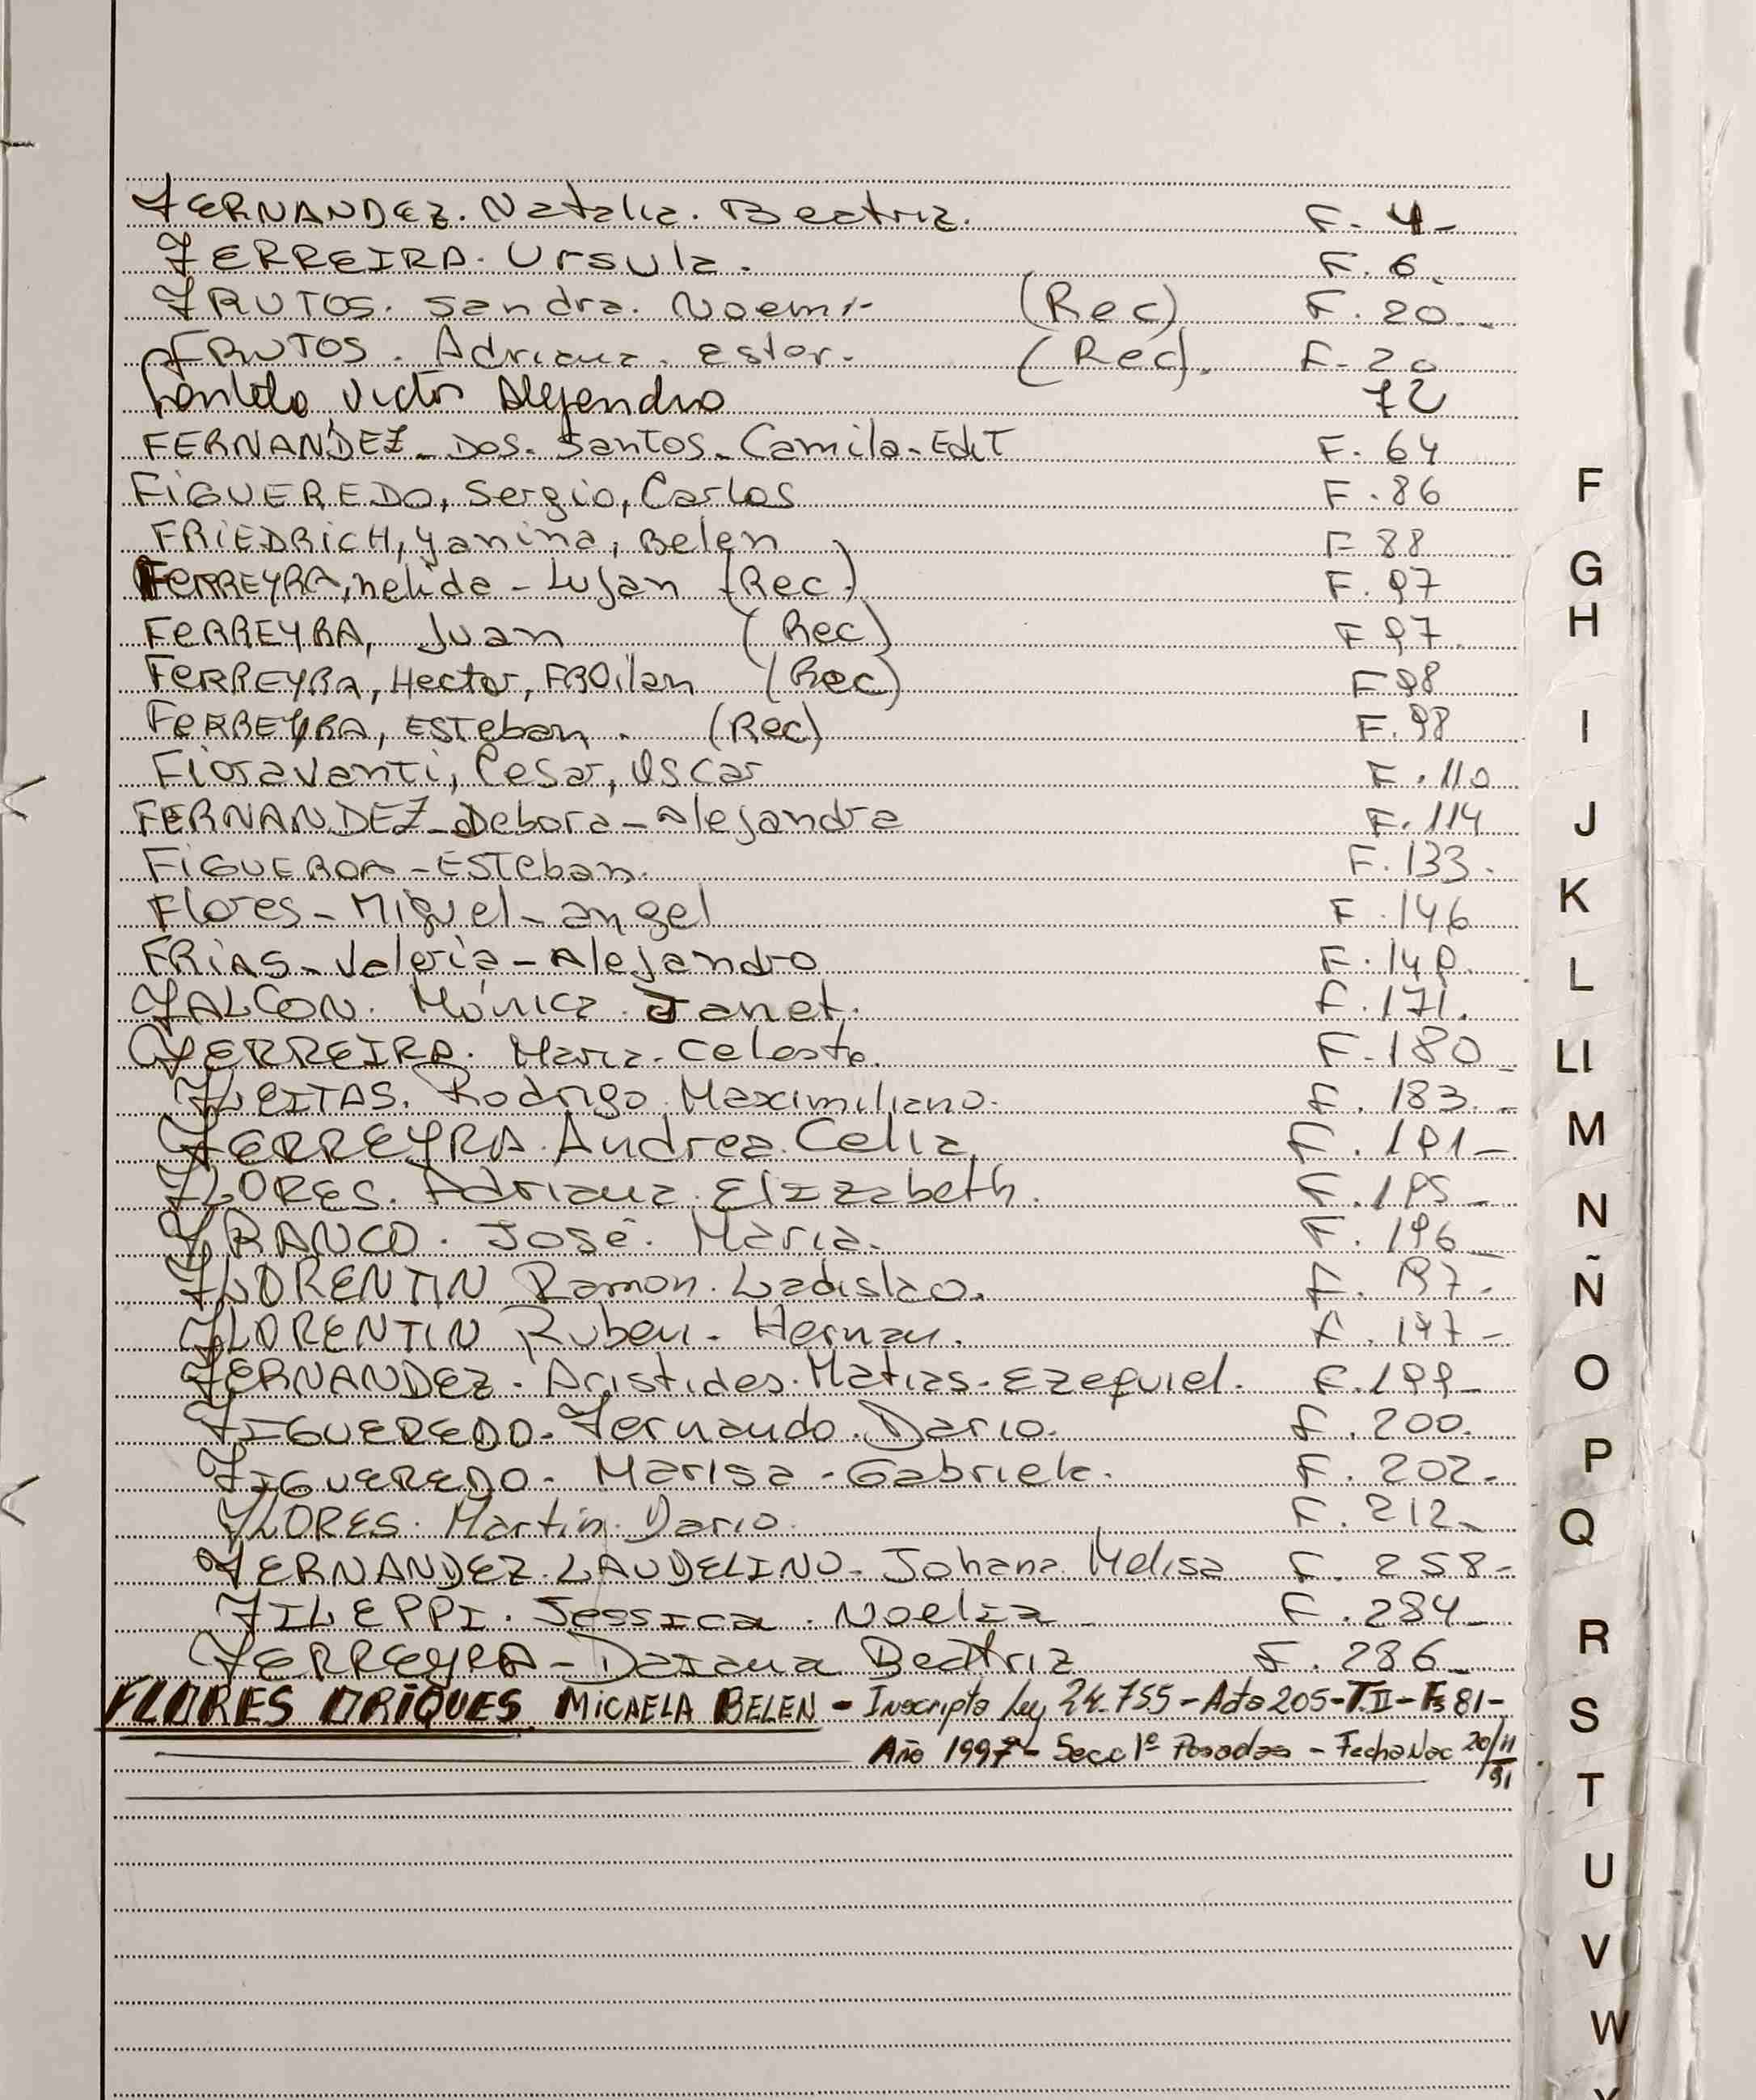 FERNANDEZ. Natalia. Beatriz. F. 4-
FERREIRA. Ursula. F. 6.
FRUTOS. Sandra. Noemi- (Rec) F. 20.
FRUTOS. Adriana. Ester. (Rec). F-20
Victor Alejandro 72
FERNANDEZ-Dos-Santos-Camila-EdiT F. 64
FiGUEREDO, Sergio, Carlos F. 86
FRiEDRiCH, yanina, Belen F 88
FeRREYRA, nelida - Lujan (Rec) F. 97
FeRREYRA, Juan (Rec) F 97.
FeRREYRA, Hector, FROilan (Rec) F 98
FeRREYRA, ESTeban. (Rec) F. 98
Fioravanti, Cesar, Oscar F. 110
FERNANDEZ-Debora-Alejandra F. 114
FiGUEROA-ESTeban. F. 133.
Flores-Miguel-angel F. 146
FRiAS-Valeria-Alejandro F. 149.
FALCON. Mónica. Janet. F. 171.
FERREIRA. Maria. Celeste. F-180
FLEITAS. Rodrigo. Maximiliano. F. 183.-
FERREYRA. Andrea. Celia. F. 191-
FLORES. Adriana. Elizabeth. F. 195-
FRANCO. José. Maria. F. 196-
FLORENTIN Ramon. Ladislao. F. 197-
FLORENTIN Ruben. Hernan. F. 197-
FERNANDEZ. Aristides. Matias. Ezequiel. F. 199-
FIGUEREDO. Fernando. Dario. F. 200.
FIGUEREDO. Marisa-Gabriela. F. 202-
FLORES. Martin. Dario. F. 212-
FERNANDEZ. LAUDELINO. Johana Melisa F. 258-
FILEPPI. Jessica. Noelia F. 284-
FERREyRA-Daiana Beatriz F. 286-
FLORES ORiQUES MiCAELA BELEN - Inscripta Ley 24.755-Acta 205-T.II-Fs 81-
Año 1997 - Secc 1º Posadas - Fecha Nac 20/11
91
F
G
H
I
J
K
L
Ll
M
N
Ñ
O
P
Q
R
S
T
U
V
W